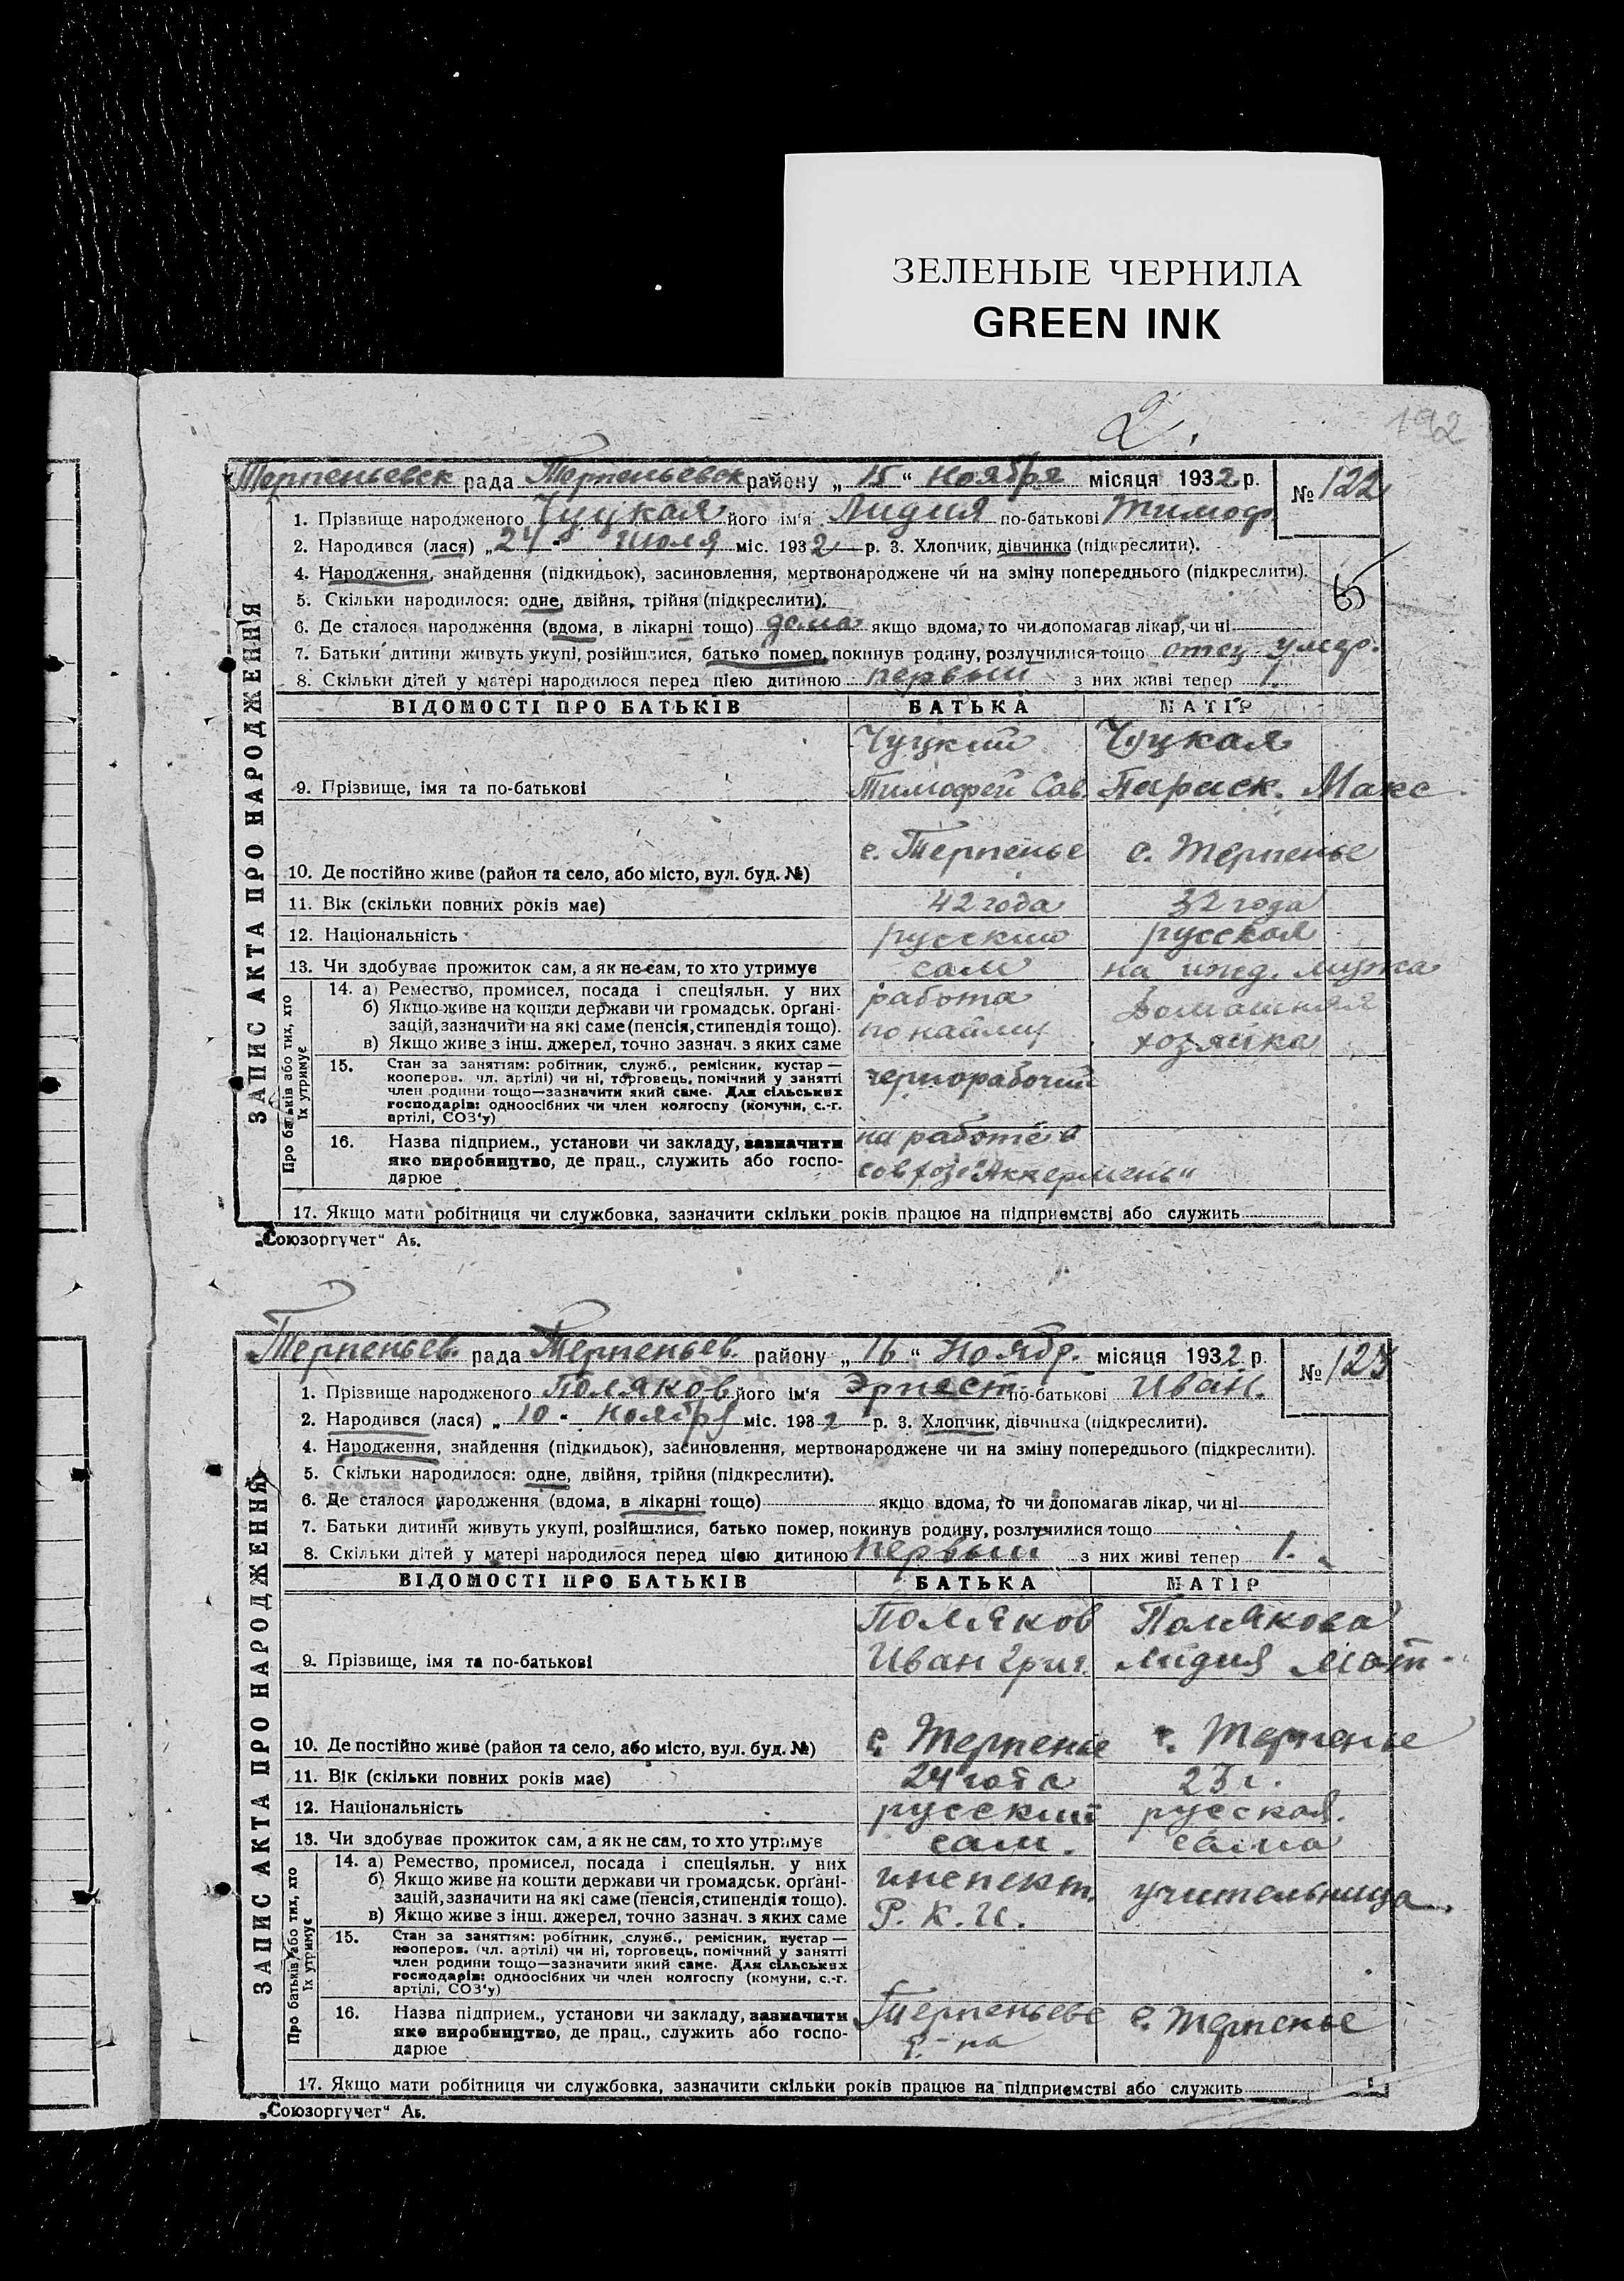 ЗЕЛЕНЫЕ ЧЕРНИЛА
GREEN INK
2.
192
Терпеньевск рада Терпеньевск району „15“ Ноября місяця 1932 р. № 122
1. Прізвище народженого Чуцкая його ім'я Лидия по-батькові Тимоф
2. Народився (лася) „24“ Июля міс. 1932 р. 3. Хлопчик, дівчинка (підкреслити).
4. Народження, знайдення (підкидьок), засиновлення, мертвонароджене чи на зміну попереднього (підкреслити).
5. Скільки народилося: одне, двійня, трійня (підкреслити).
6. Де сталося народження (вдома, в лікарні тощо) дома якщо вдома, то чи допомагав лікар, чи ні
7. Батьки дитини живуть укупі, розійшлися, батько помер, покинув родину, розлучилися тощо отец умер.
8. Скільки дітей у матері народилося перед цією дитиною первый з них живі тепер 1.
ЗАПИС АКТА ПРО НАРОДЖЕННЯ
ВІДОМОСТІ ПРО БАТЬКІВ БАТЬКА МАТІР
Чуцкий Чуцкая
9. Прізвище, імя та по-батькові Тимофей Сав. Параск. Макс
10. Де постійно живе (район та село, або місто, вул. буд. №) с. Терпенье с. Терпенье
11. Вік (скільки повних років має) 42 года 32 года
12. Національність русский русская
13. Чи здобуває прожиток сам, а як не сам, то хто утримує сам на ижд. мужа
Про батьків або тих, хто їх утримує
14. а) Ремество, промисел, посада і спеціяльн. у них работа Домашняя
б) Якщо живе на кошти держави чи громадськ. органі-
зацій, зазначити на які саме (пенсія, стипендія тощо). по найму хозяйка
в) Якщо живе з інш. джерел, точно зазнач. з яких саме
15. Стан за заняттям: робітник, служб., ремісник, кустар —
кооперов. чл. артілі) чи ні, торговець, помічний у занятті чернорабочий
член родини тощо—зазначити який саме. Для сільських
господарів: одноосібних чи член колгоспу (комуни, с.-г.
артілі, СОЗ'у)
16. Назва підприєм., установи чи закладу, зазначити на работе в
яко виробництво, де прац., служить або госпо- совхозе "Аккермень"
дарює
17. Якщо мати робітниця чи службовка, зазначити скільки років працює на підприємстві або служить
„Союзоргучет“ Аб.
Терпеньев. рада Терпеньев. району „16“ Ноябр. місяця 1932 р. № 123
1. Прізвище народженого Поляков його ім'я Эрнест по-батькові Иван.
2. Народився (лася) „10“ Ноября міс. 1932 р. 3. Хлопчик, дівчинка (підкреслити).
4. Народження, знайдення (підкидьок), засиновлення, мертвонароджене чи на зміну попереднього (підкреслити).
5. Скільки народилося: одне, двійня, трійня (підкреслити).
6. Де сталося народження (вдома, в лікарні тощо) якщо вдома, то чи допомагав лікар, чи ні
7. Батьки дитини живуть укупі, розійшлися, батько помер, покинув родину, розлучилися тощо
8. Скільки дітей у матері народилося перед цією дитиною первый з них живі тепер 1.
ЗАПИС АКТА ПРО НАРОДЖЕННЯ
ВІДОМОСТІ ПРО БАТЬКІВ БАТЬКА МАТІР
Поляков Полякова
9. Прізвище, імя та по-батькові Иван Григ. Лидия Мат.
10. Де постійно живе (район та село, або місто, вул. буд. №) с. Терпенье с. Терпенье
11. Вік (скільки повних років має) 24 года 23 г.
12. Національність русский русская.
13. Чи здобуває прожиток сам, а як не сам, то хто утримує сам. сама
Про батьків або тих, хто їх утримує
14. а) Ремество, промисел, посада і спеціяльн. у них инспект.
б) Якщо живе на кошти держави чи громадськ. органі- учительница.
зацій, зазначити на які саме (пенсія, стипендія тощо).
в) Якщо живе з інш. джерел, точно зазнач. з яких саме Р. К. И.
15. Стан за заняттям: робітник, служб., ремісник, кустар —
кооперов. (чл. артілі) чи ні, торговець, помічний у занятті
член родини тощо—зазначити який саме. Для сільських
господарів: одноосібних чи член колгоспу (комуни, с.-г.
артілі, СОЗ'у)
16. Назва підприєм., установи чи закладу, зазначити Терпеньевс с. Терпенье
яко виробництво, де прац., служить або госпо- р-на
дарює
17. Якщо мати робітниця чи службовка, зазначити скільки років працює на підприємстві або служить
„Союзоргучет“ Аб.